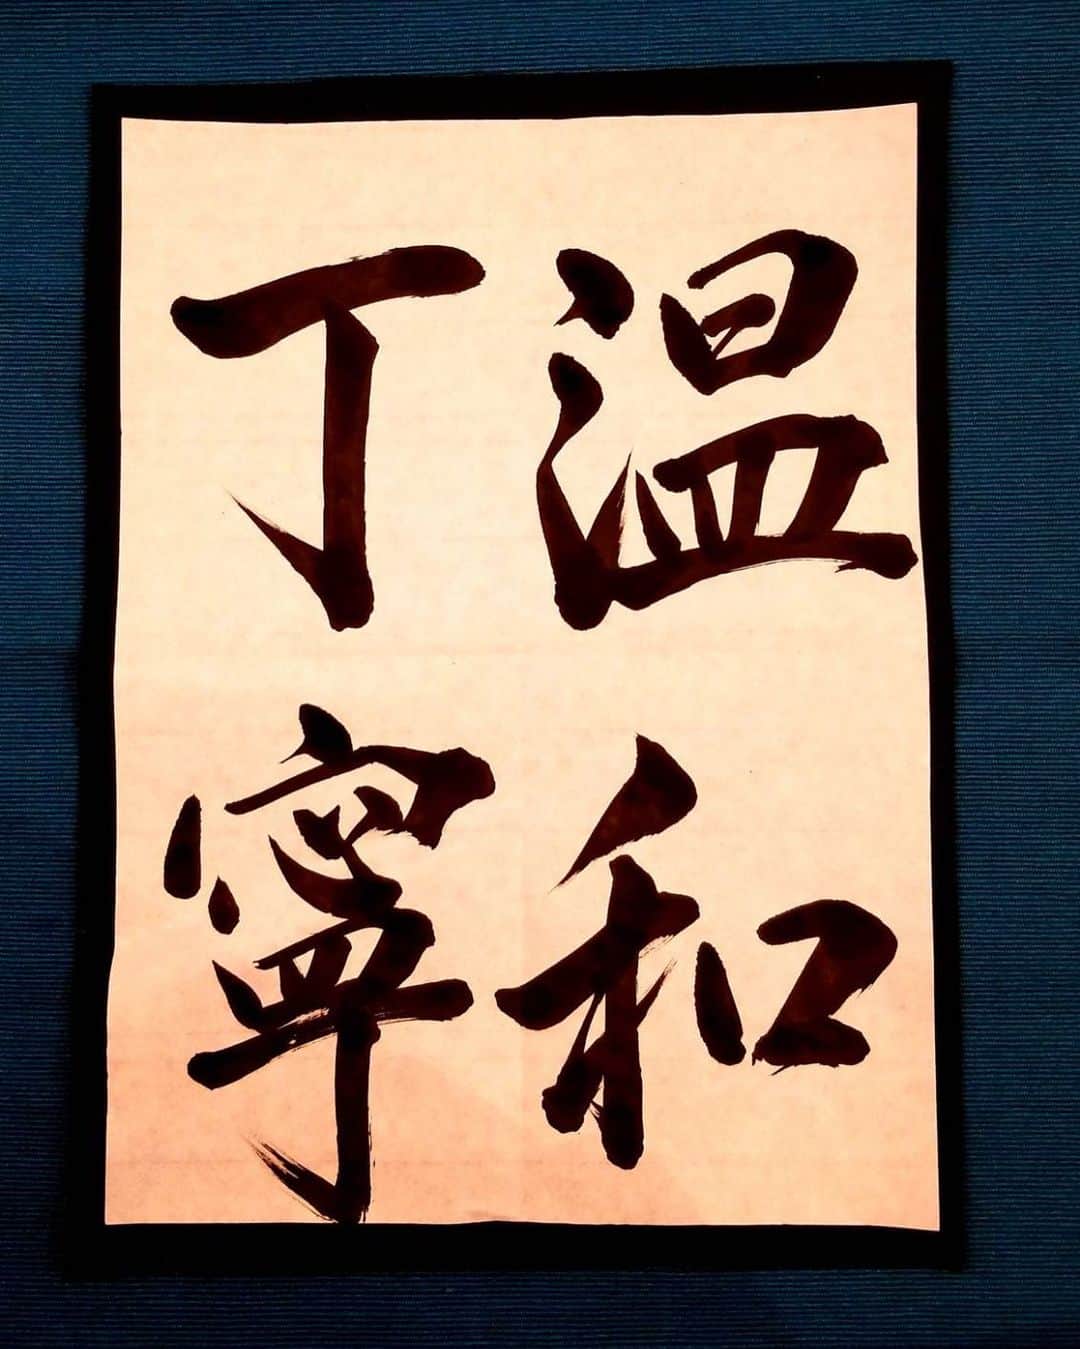 温和
丁寧